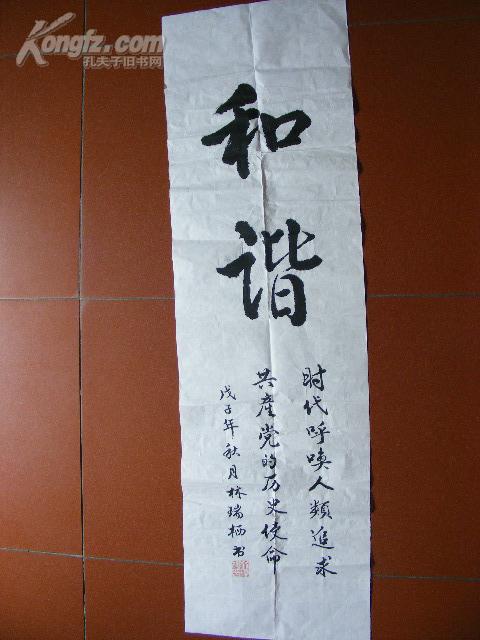 Kongfz.com
孔夫子旧书网
和谐
时代呼唤人類追求
共產党的历史使命
戊子年秋月林瑞栖书